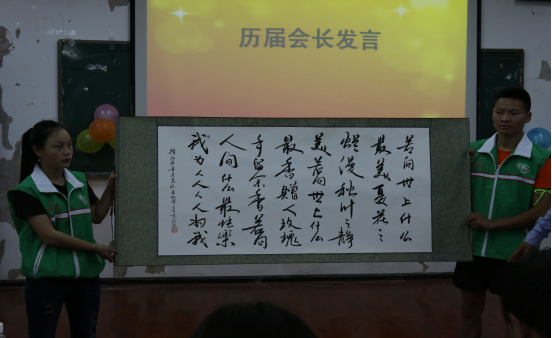 历届会长发言
若问世上什么
最美夏花之
烂漫秋叶之静
美若问世上什么
最香赠人玫瑰
手留余香若问
人间什么最快樂
我为人人人人为我